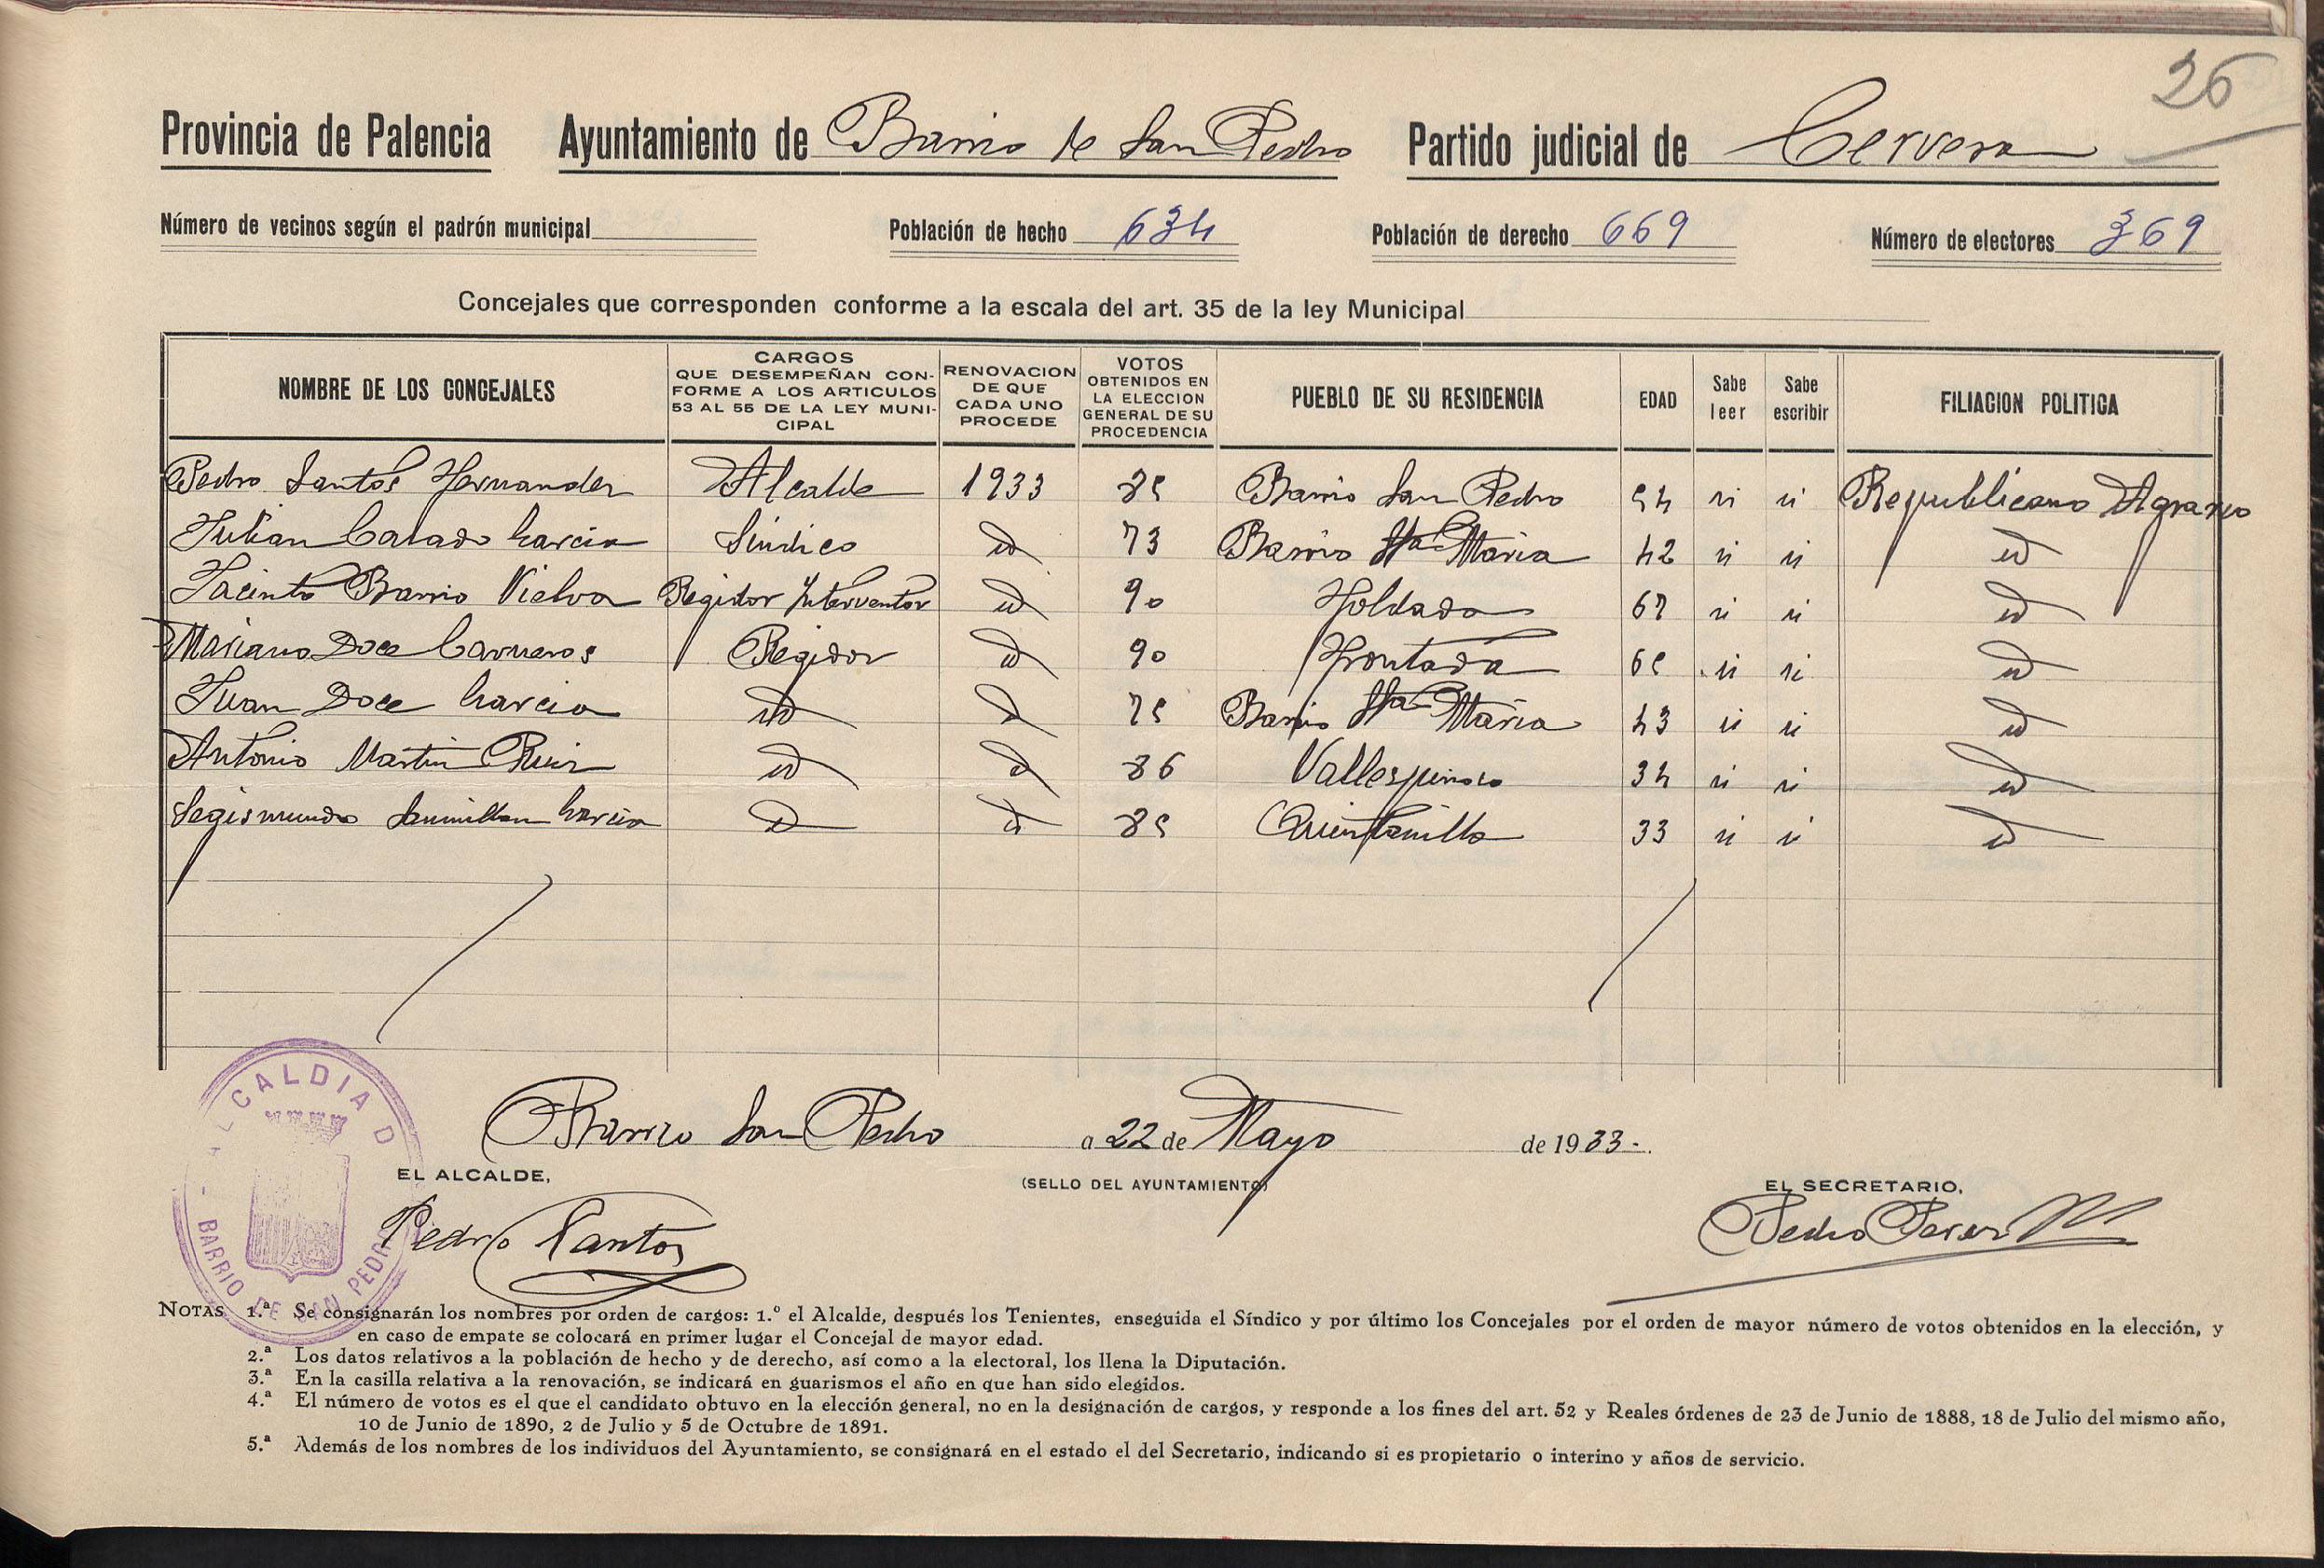 26
Provincia de Palencia Ayuntamiento de Barrio de San Pedro Partido judicial de Cervera
Número de vecinos según el padrón municipal Población de hecho 634 Población de derecho 669 Número de electores 369
Concejales que corresponden conforme a la escala del art. 35 de la ley Municipal
NOMBRE DE LOS CONCEJALES CARGOS QUE DESEMPEÑAN CONFORME A LOS ARTICULOS 53 AL 55 DE LA LEY MUNICIPAL RENOVACION DE QUE CADA UNO PROCEDE VOTOS OBTENIDOS EN LA ELECCION GENERAL DE SU PROCEDENCIA PUEBLO DE SU RESIDENCIA EDAD Sabe leer Sabe escribir FILIACION POLITICA
Pedro Santos Hernandez Alcalde 1933 85 Barrio San Pedro 54 si si Republicano Agrario
Julian Calado Garcia Síndico id 73 Barrio Sta Maria 42 si si id
Jacinto Barrio Vielva Regidor Interventor id 90 67 si si id
Mariano Doce Carneros Regidor id 90 Frontada 65 si si id
Juan Doce Garcia id id 75 Barrio Sta Maria 43 si si id
Antonio Martin Ruiz id id 86 Vallespinoso 34 si si id
Segismundo Sanmillan Garcia id id 85 Quintanilla 33 si si id
ALCALDIA D
BARRIO DE SAN PEDRO
Barrio San Pedro a 22 de Mayo de 1933.
EL ALCALDE, (SELLO DEL AYUNTAMIENTO) EL SECRETARIO,
Pedro Santos Pedro
NOTAS 1.ª Se consignarán los nombres por orden de cargos: 1.º el Alcalde, después los Tenientes, enseguida el Síndico y por último los Concejales por el orden de mayor número de votos obtenidos en la elección, y
en caso de empate se colocará en primer lugar el Concejal de mayor edad.
2.ª Los datos relativos a la población de hecho y de derecho, así como a la electoral, los llena la Diputación.
3.ª En la casilla relativa a la renovación, se indicará en guarismos el año en que han sido elegidos.
4.ª El número de votos es el que el candidato obtuvo en la elección general, no en la designación de cargos, y responde a los fines del art. 52 y Reales órdenes de 23 de Junio de 1888, 18 de Julio del mismo año,
10 de Junio de 1890, 2 de Julio y 5 de Octubre de 1891.
5.ª Además de los nombres de los individuos del Ayuntamiento, se consignará en el estado el del Secretario, indicando si es propietario o interino y años de servicio.